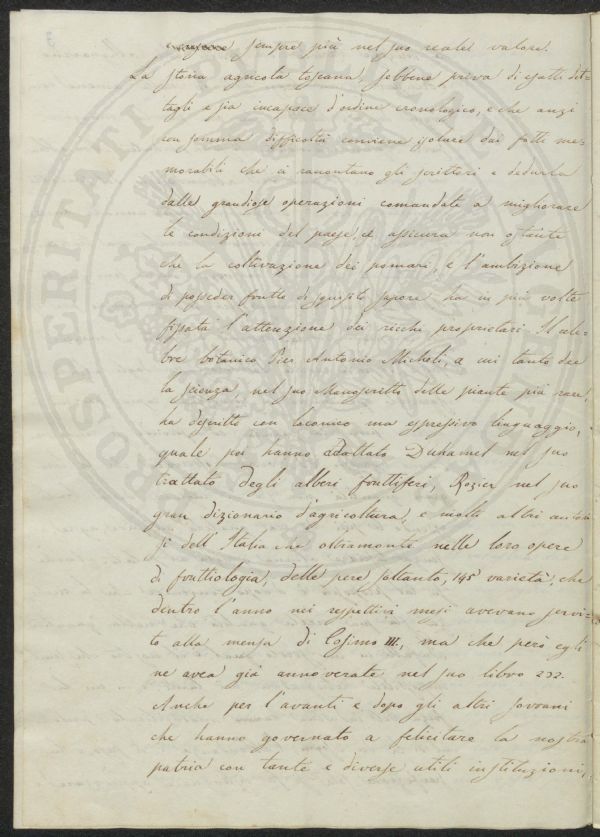 sempre più nel suo reale valore.
La storia agricola toscana, sebbene priva di esatti det-
tagli e sia incapace d'ordine cronologico, e che anzi
con somma difficoltà conviene isolare dai fatti me-
morabili che ci raccontano gli scrittori e dedurla
dalle grandiose operazioni comandate a migliorare
le condizioni del paese, ci assicura non ostante
che la coltivazione dei pomari, e l'ambizione
di posseder frutto di squisito sapore ha in più volte
fissata l'attenzione dei ricchi proprietari. Il cele-
bre botanico Pier Antonio Micheli, a cui tanto dee
la scienza, nel suo Manoscritto delle piante più rare,
ha descritto con laconico ma espressivo linguaggio,
quale poi hanno addattato Duhamel nel suo
trattato degli alberi fruttiferi, Rozier nel suo
gran dizionario d'agricoltura, e molti altri
si dell'Italia che oltramonte nelle loro opere
di fruttiologia, delle pere soltanto, 145 varietà, che
dentro l'anno nei respettivi mesi avevano servi-
to alla mensa di Cosimo III., ma che però egli
ne avea già annoverate nel suo libro 232.
Anche per l'avanti e dopo gli altri sovrani
che hanno governato a felicitare la nostra
patria con tante e diverse utili instituzioni,